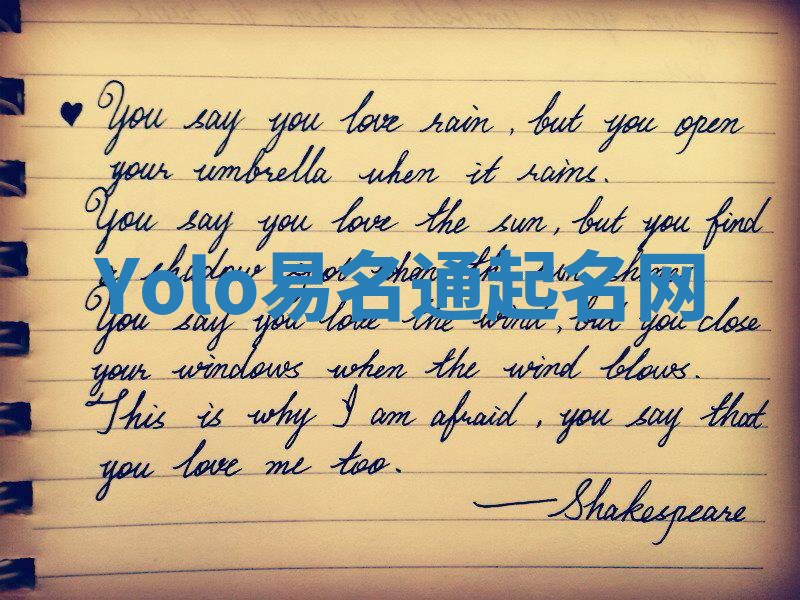 ♥ You say you love rain, but you open
your umbrella when it rains.
You say you love the sun, but you find
a shadow spot when the sun shines
Yolo易名通起名网
You say you love the wind, but you close
your windows when the wind blows.
This is why I am afraid, you say that
you love me too.
—Shakespeare